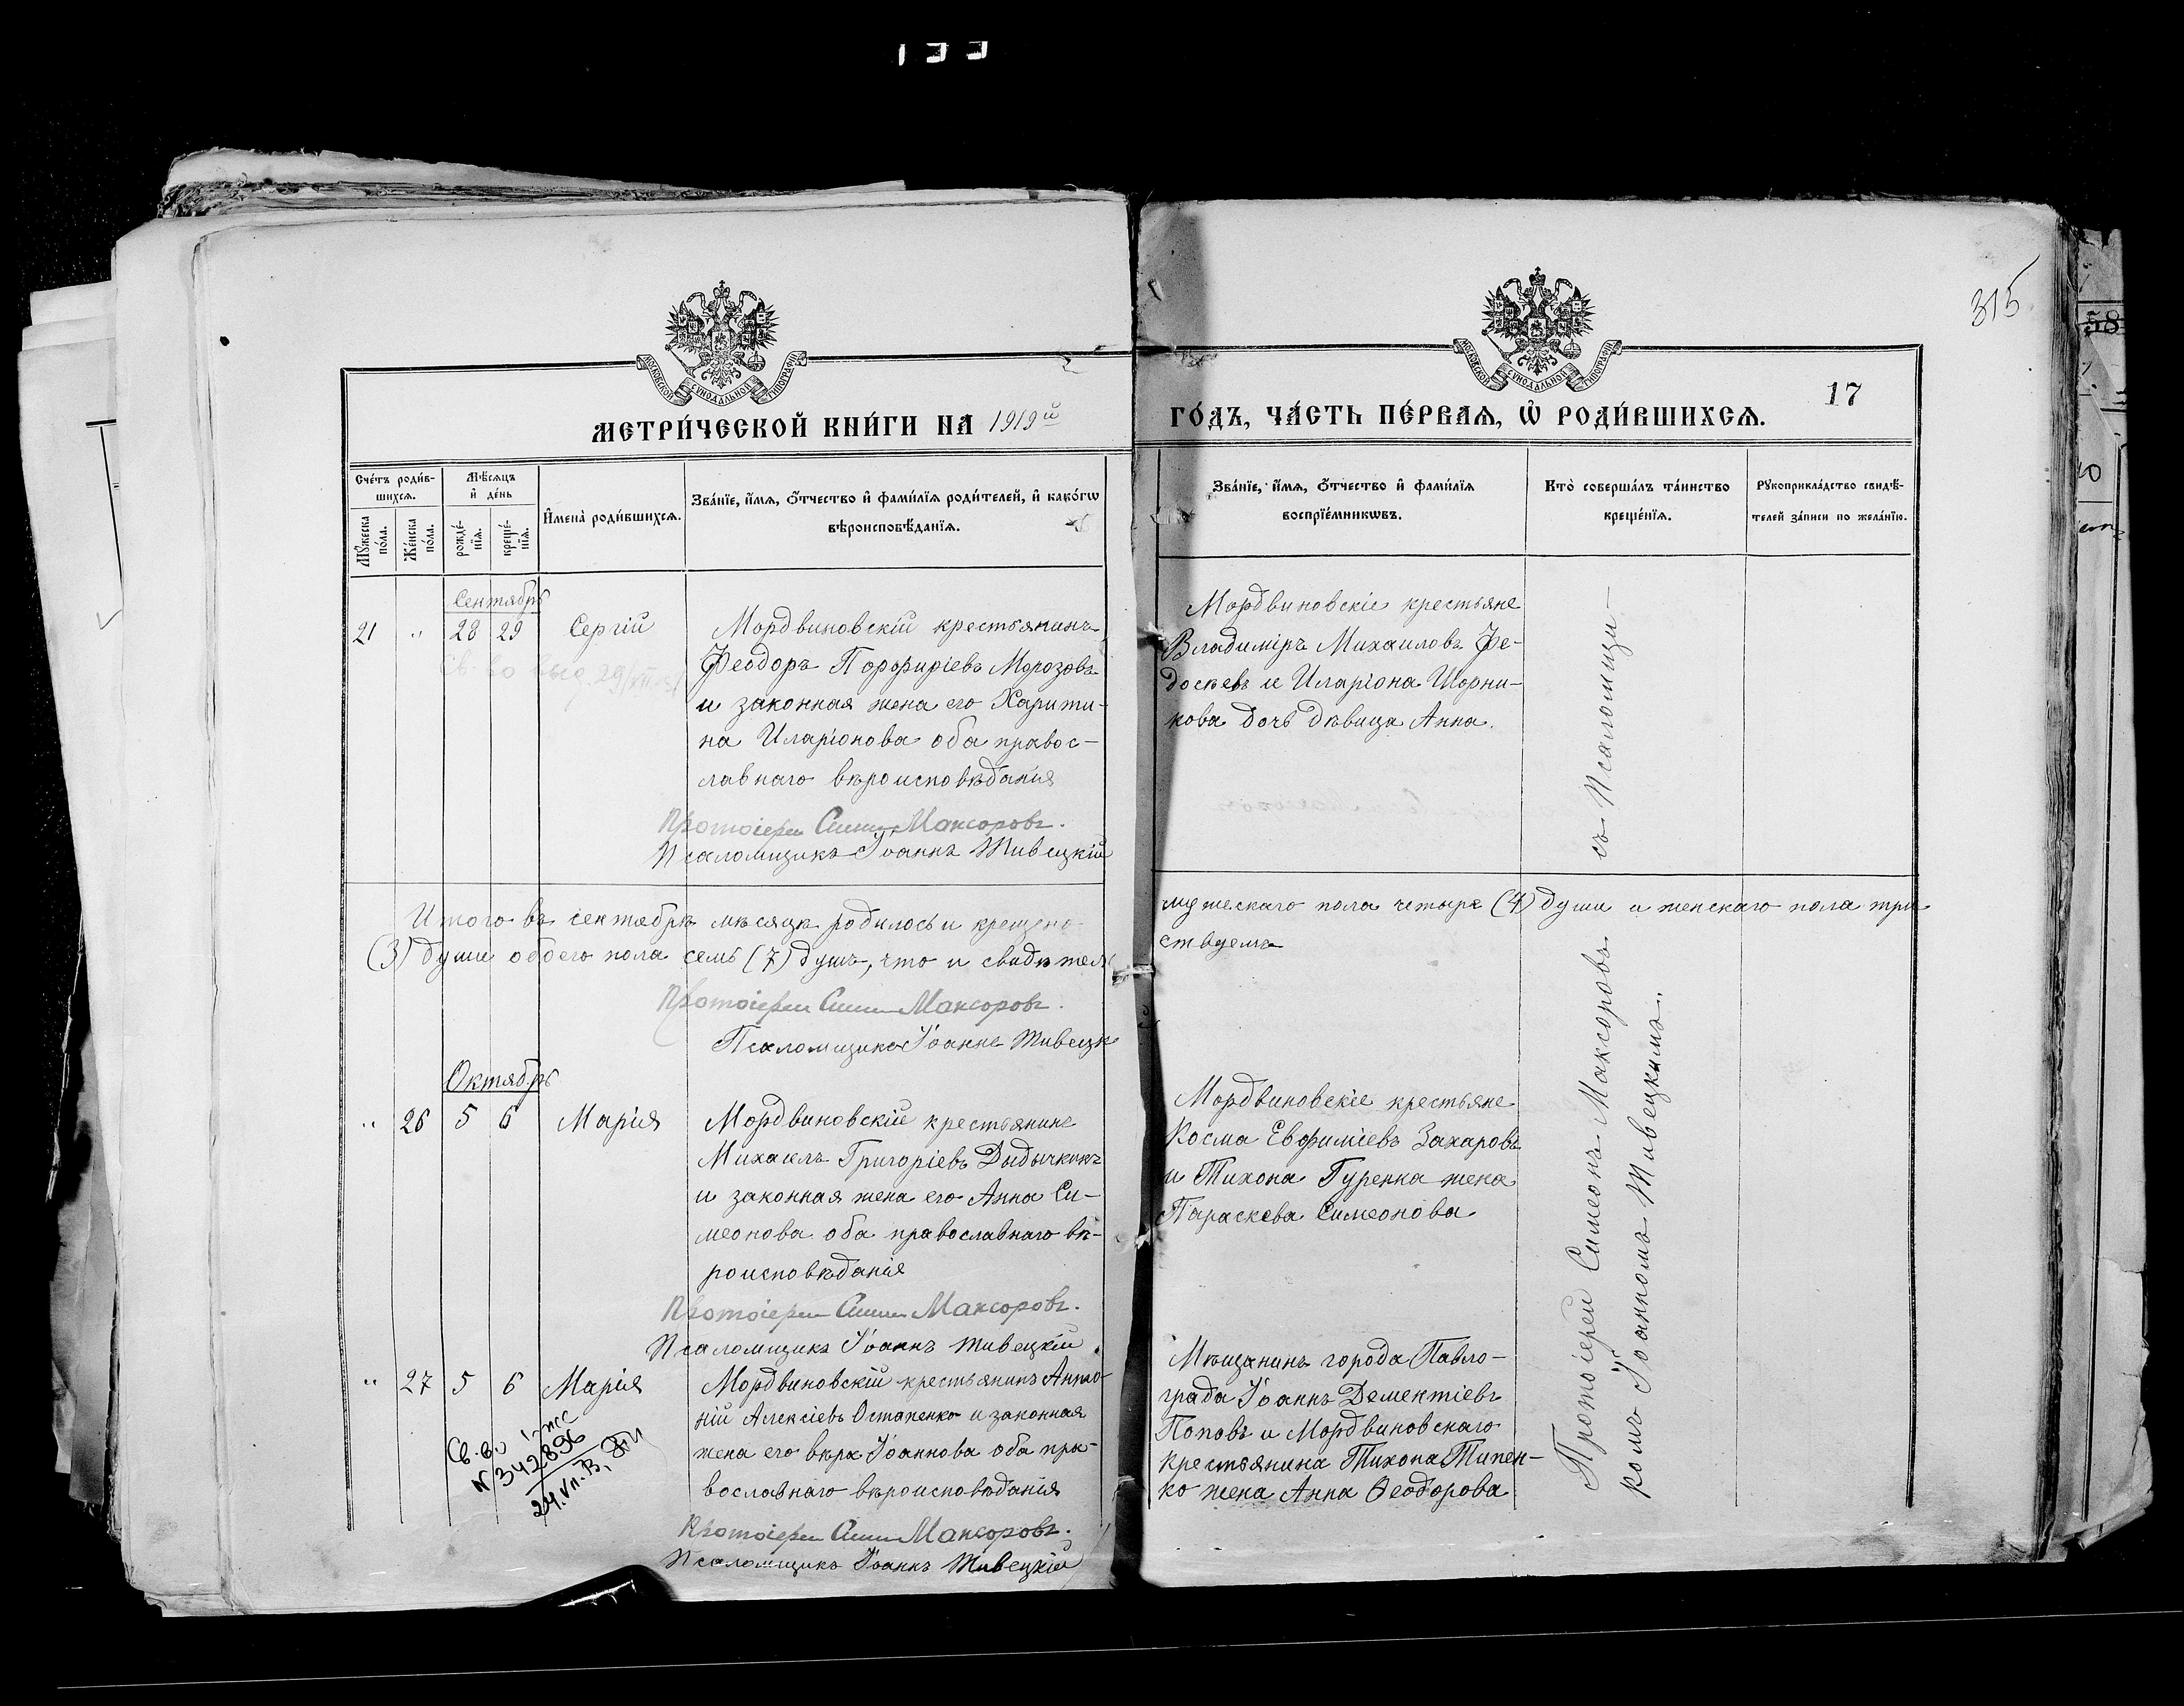 133
315
МОСКОВСКОЙ СУНОДАЛЬНОЙ ТИПОГРАФІИ
МОСКОВСКОЙ СУНОДАЛЬНОЙ ТИПОГРАФІИ
17
МЕТРИ́ЧЕСКОЙ КНИ́ГИ НА 1919й
ГО́ДЪ, ЧА́СТЬ ПЕ́РВАѦ, Ѡ҆ РОДИ́ВШИХСѦ.
Сче́тъ роди́в-
шихсѧ.
Мꙋ́жеска
по́ла.
Же́нска
по́ла.
Мѣ́сѧцъ
и҆ де́нь
рожде́-
нїѧ.
креще́-
нїѧ.
И҆мена̀ роди́вшихсѧ.
Зва́нїе, и҆́мѧ, ѻ҆́тчество и҆ фами́лїѧ роди́телей, и҆ како́гѡ
вѣроисповѣ́данїѧ.
Зва́нїе, и҆́мѧ, ѻ҆́тчество и҆ фами́лїѧ
воспрїе́мникѡвъ.
Кто̀ соверша́лъ та́инство
креще́нїѧ.
Рꙋкоприкла́дство свидѣ́-
телей за́писи по жела́нїю.
Сентябрь
21 " 28 29 Сергій
Мордвиновскій крестьянинъ
Ѳеодоръ Порфиріевъ Морозовъ
и законная жена его Харити-
на Иларіонова оба правос-
лавнаго вѣроисповѣданія
Протоіерей Симеонъ Максоровъ.
Псаломщикъ Іоаннъ Тивецкій
Св-во выд. 29/
Мордвиновскіе крестьяне
Владиміръ Михаиловъ Фе-
досѣевъ и Иларіона Шорни-
кова дочь дѣвица Анна.
Итого въ сентябрѣ мѣсяцѣ родилось и крещено
мужескаго пола четыре (4) души и женскаго пола три
(3) души обоего пола семь (7) душъ, что и свидѣтель
ствуемъ
Протоіерей Симеонъ Максоровъ.
Псаломщикъ Іоаннъ Тивецк
Октябрь
" 26 5 6 Марія
Мордвиновскій крестьянинъ
Михаилъ Григоріевъ Дыдычкинъ
и законная жена его Анна Си-
меонова оба православнаго вѣ-
роисповѣданія
Протоіерей Симеонъ Максоровъ.
Псаломщикъ Іоаннъ Тивецкій.
Мордвиновскіе крестьяне
Косма Евфиміевъ Захаровъ
и Тихона Гуренка жена
Параскева Симеонова
" 27 5 6 Марія
Мордвиновскій крестьянинъ Анто-
ній Алексіевъ Остапенко и законная
жена его Вѣра Іоаннова оба пра-
вославнаго вѣроисповѣданія
Протоіерей Симеонъ Максоровъ.
Псаломщикъ Іоаннъ Тивецкій
Св.-во
N 342896
Мѣщанинъ города Павло-
града Іоаннъ Дементіевъ
Поповъ и Мордвиновскаго
крестьянина Тихона Типен-
ко жена Анна Ѳеодорова
Протоіерей Симеонъ Максоровъ съ Псаломщи-
комъ Іоанномъ Тивецкимъ.
58